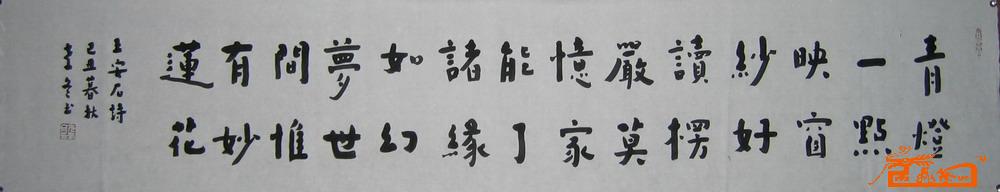 青燈
一點
映窗
紗好
讀楞
嚴莫
憶家
能了
諸緣
如幻
夢世
間惟
有妙
蓮花
王安石詩
己丑暮秋